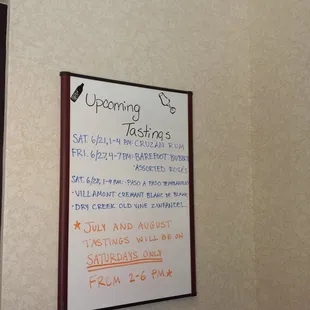 Upcoming
Tastings
SAT. 6/21, 1-4 PM: CRUZAN RUM
FRI. 6/27, 4-7PM: BAREFOOT BUBBLY
ASSORTED ROSÉS
SAT. 6/28, 1-4PM: PASO A PASO TEMPRANILLO
• VILLAMONT CREMANT BLANC DE BLANC
• DRY CREEK OLD VINE ZINFANDEL
★ JULY AND AUGUST
TASTINGS WILL BE ON
SATURDAYS ONLY
FROM 2-6 PM ★